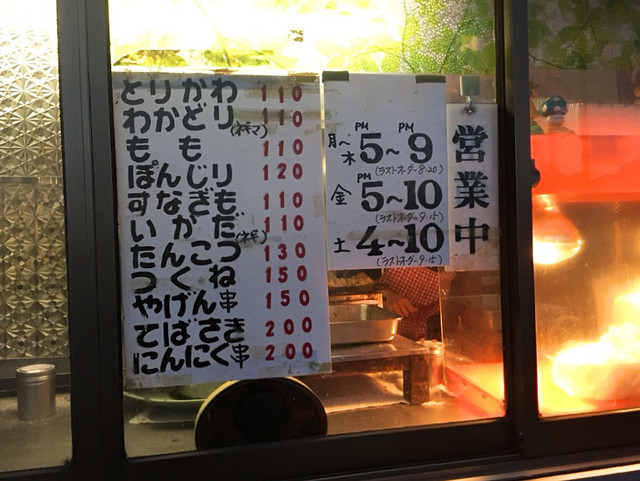 とりかわ 110
わかどり(ネギマ) 110
もも 110
ぽんじり 120
すなぎも 110
いかだ(ネギ) 110
たんこつ 130
つくね 150
やげん串 150
てばさき 200
にんにく串 200
月〜木 PM5〜PM9
(ラストオーダー8:20)
金 PM5〜10
(ラストオーダー9:15)
土 4〜10
(ラストオーダー9:15)
営業中